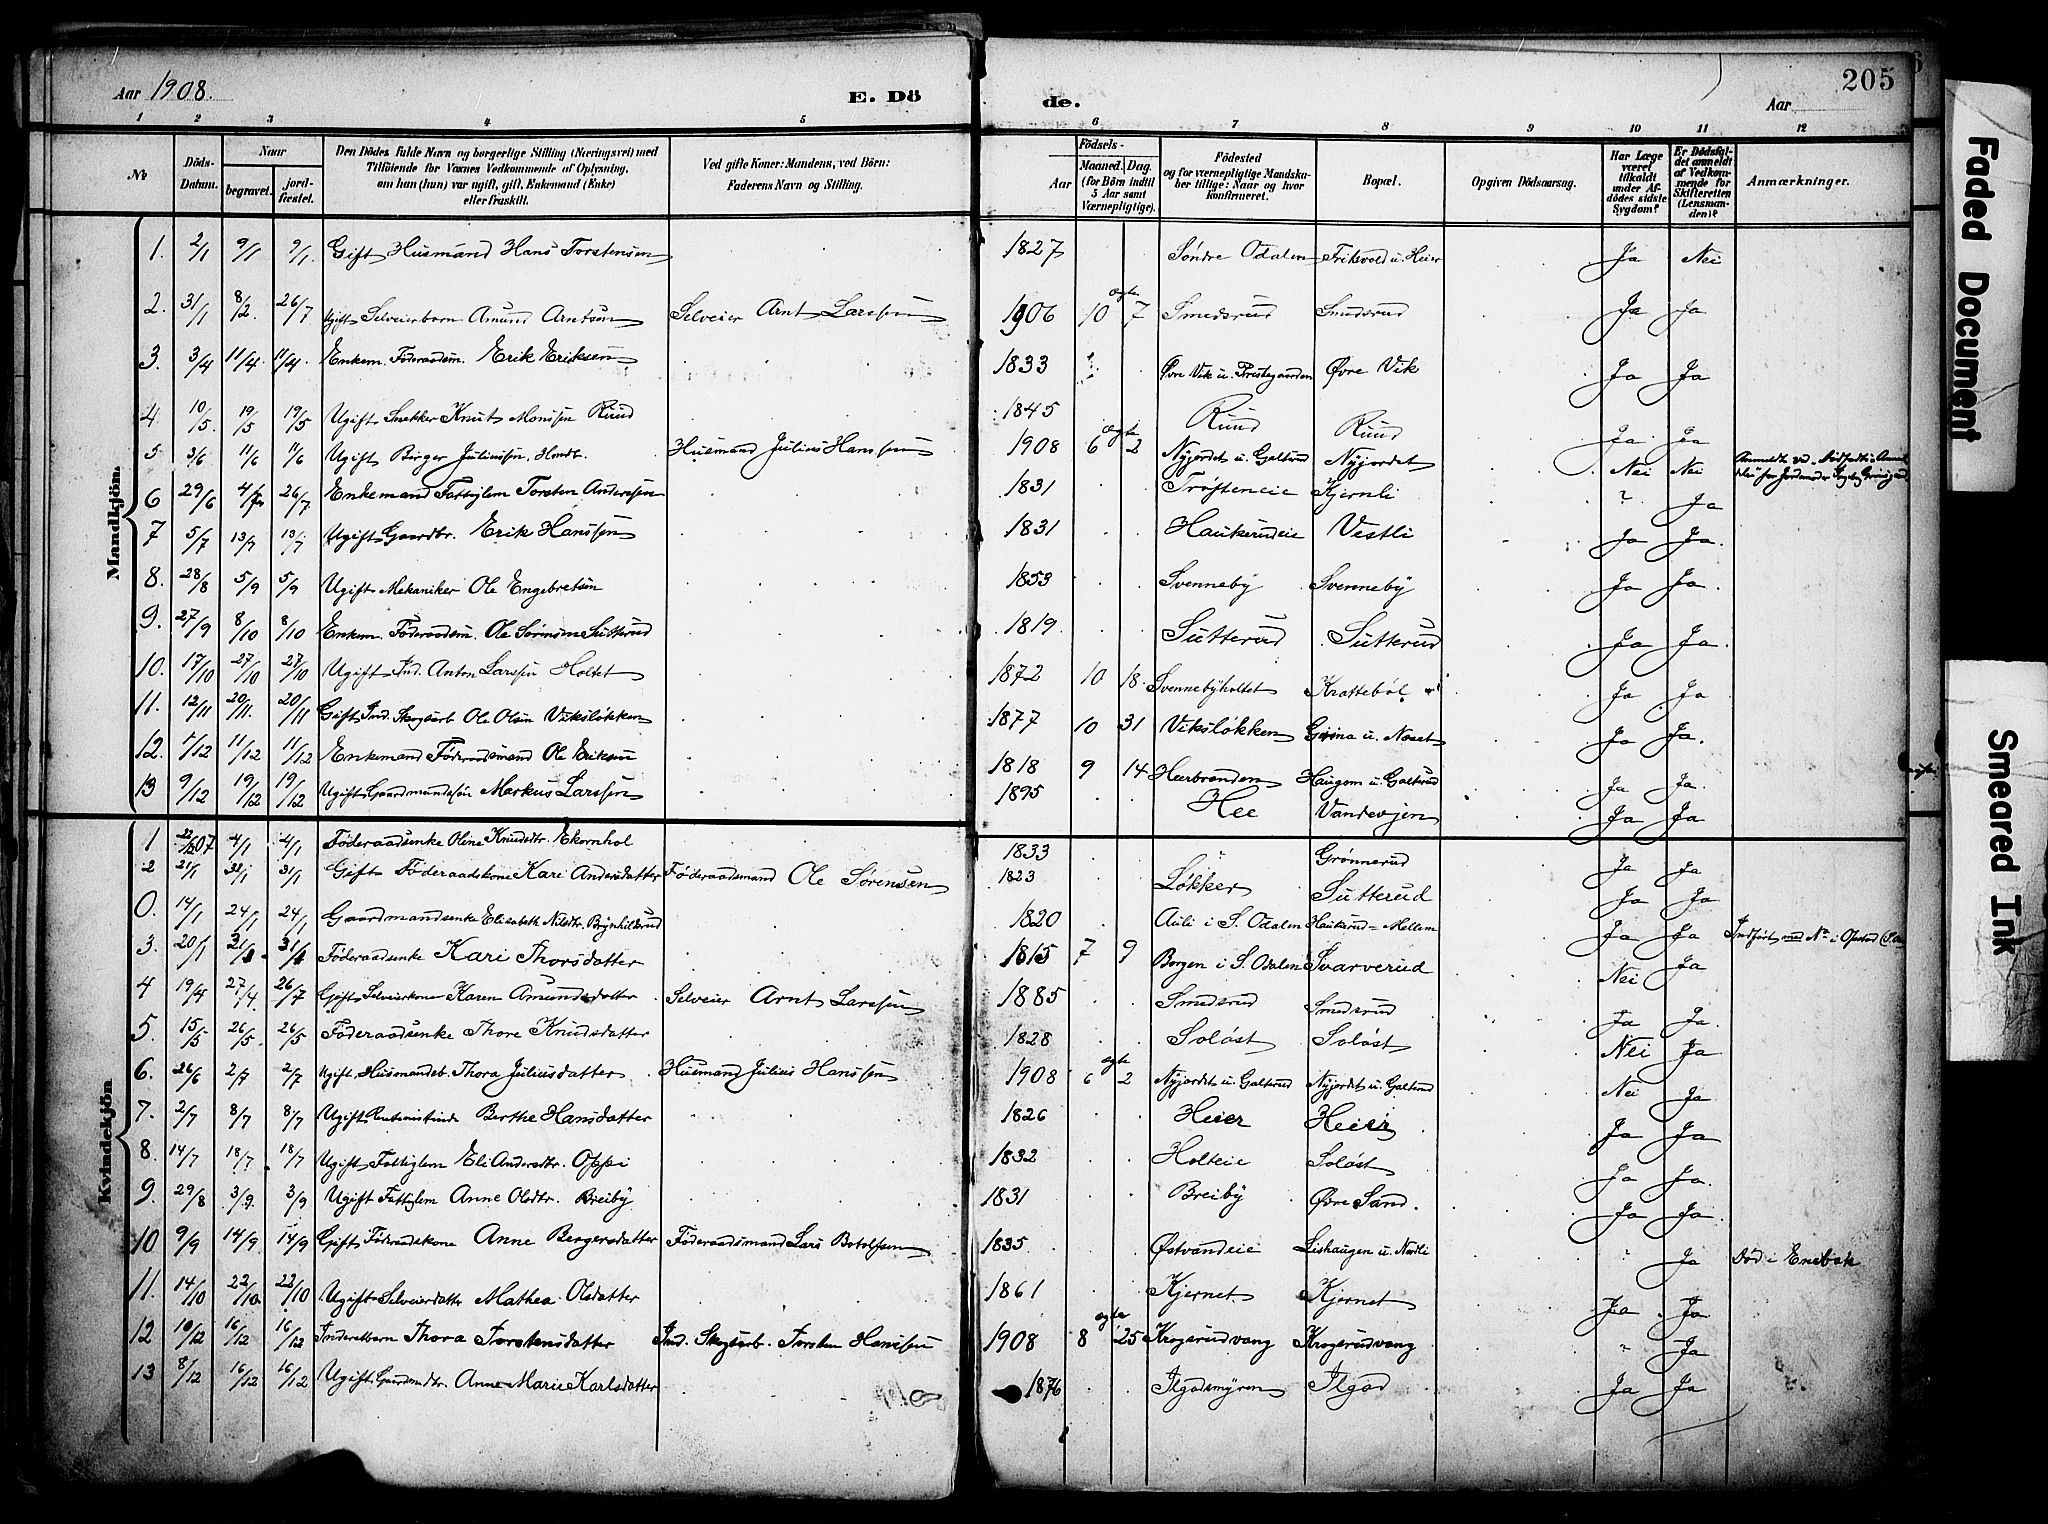 Aar 1908.
E. Dö
de.
Aar
205
1 2 3 4 5 6 7 8 9 10 11 12
No
Döds-Datum.
Naar
begravet.
jord-festet.
Den Dödes fulde Navn og borgerlige Stilling (Næringsvei) med Tilföiende for Voxnes Vedkommende af Oplysning, om han (hun) var ugift, gift, Enkemand (Enke) eller fraskilt.
Ved gifte Koner: Mandens, ved Börn: Faderens Navn og Stilling.
Födsels-
Aar
Maaned. Dag.
(for Börn indtil 5 Aar samt Værnepligtige).
Födested og for værnepligtige Mandskaber tillige: Naar og hvor konfirmeret.
Bopæl.
Opgiven Dödsaarsag.
Har Læge været tilkaldt under Afdödes sidste Sygdom?
Er Dödsfaldet anmeldt af Vedkommende for Skifteretten (Lensmanden)?
Anmærkninger.
Mandkjön.
1. 2/1 9/1 9/1 Gift Husmand Hans Torstensen 1827 Søndre Odalen Friksvold u. Heier Ja Nei
2. 31/1 8/2 26/7 Ugift Selveierbarn Amund Arntsen Selveier Arnt Larssen 1906 10 ægte 7 Smedsrud Smedsrud Ja Ja
3. 3/4 11/4 11/4 Enkem. Føderaadsm. Erik Eriksen 1833 Øvre Vik u. Prestegaarden Øvre Vik Ja Ja
4. 10/5 19/5 19/5 Ugift Snekker Knut Monssen Ruud 1845 Ruud Ruud Ja Ja
5 3/6 11/6 11/6 Ugift Birger Juliussen, Husmb. Husmand Julius Hanssen 1908 6 ægte 2 Nyjordet u. Galterud Nyjordet Nei Nei
6 29/6 4/7 26/7 Enkemand Fattiglem Torsten Anderssen 1831 Trøfteneie Kjernli " Ja
7 5/7 13/7 13/7 Ugift Gaardbr. Erik Hanssen 1831 Haukerudeie Vestli Ja Ja.
8. 28/8 5/9 5/9 Ugift Mekaniker Ole Engebretsen 1853 Svenneby Svenneby Ja Ja
9. 27/9 8/10 8/10 Enkem. Føderaadsm. Ole Sørensen Sutterud 1819 Sutterud Sutterud Ja Ja.
10. 17/10 27/10 27/10 Ugift Ind. Anton Larssen Holtet 1872 10 18. Svennebyholtet Krattebøl Ja Ja.
11. 12/11 20/11. 20/11 Gift Ind. Skogsarb Ole Olsen Viksløkken 1877 10 31 Viksløkken Grina u. Næset Ja Ja.
12. 1/12 11/12 11/12 Enkemand Føderaadsmand Ole Eriksen 1818 9 14 Heerbraaden Haugom u. Galterud Ja Ja.
13 9/12 19/12 19/12 Ugift Gaardmandssøn Markus Larssen 1895 Hee Vandevjen Ja Ja
Kvindekjön.
1 22/12 07 4/1 4/1 Føderaadsenke Oline Knudsdtr. Ekornhol 1833 Grønnerud Ja Ja
2 21/1 31/1 31/1 Gift Føderaadskone Kari Andersdatter Føderaadsmand Ole Sørensen 1823 Løkker Sutterud Ja Ja
0. 14/1 24/1 24/1 Gaardmandsenke Elisabeth Nilsdtr. Brynhildsrud 1820 Auli i S. Odalen Haukerud-Mellem Ja Ja Indført med No i Opstad
3. 20/1 31/1 31/1 Føderaadsenke Kari Thorsdatter 1815 7 9 Borgen i S. Odalen Svarverud Nei Ja
4 19/4 27/4. 26/7 Gift Selveierkone Karen Amundsdatter Selveier Arnt Larssen 1885 Smedsrud Smedsrud Ja Ja.
5. 15/5 26/5. 26/5 Føderaadsenke Thore Knudsdatter 1828 Soløst Soløst Nei Ja
6. 26/6 2/7 2/7 Ugift Husmandsb. Thora Juliusdatter Husmand Julius Hanssen 1908 6 ægte 2 Nyjordet u. Galterud Nyjordet u. Galterud Nei Ja
7. 2/7 8/7 8/7 Ugift Rentenistinde Berthe Hansdatter 1826 Heier Heier Ja Ja
8. 14/7 18/7 18/7 Ugift Fattiglem Eli Andersdtr. Oppi 1832 Holteie Soløst Ja Ja.
9. 29/8 3/9. 3/9 Ugift Fattiglem Anne Olsdtr. Breiby 1831 Breiby Øvre Sand. Ja Ja.
10 9/9 14/9 14/9 Gift Føderaadskone Anne Bergersdatter Føderaadsmand Lars Botolfsen 1835 Østvandeie Lishaugen u. Nordli " Ja Død i Enebak
11. 14/10 22/10 22/10 Ugift Selveierdatter Mathea Olsdatter 1861 Kjernet Kjernet Ja Ja
12 10/12 16/12 16/12 Inderstbarn Thora Torstensdatter Ind. Skogsarb. Torsten Hanssen 1908 8 ægte 25 Krogsrudvang Krogsrudvang " Ja
13 8/12 16/12 16/12 Ugift Gaardmdtr. Anne Marie Karlsdatter 1876 Ilgadsmyren Ilgad Ja Ja
Faded Document
Smeared Ink